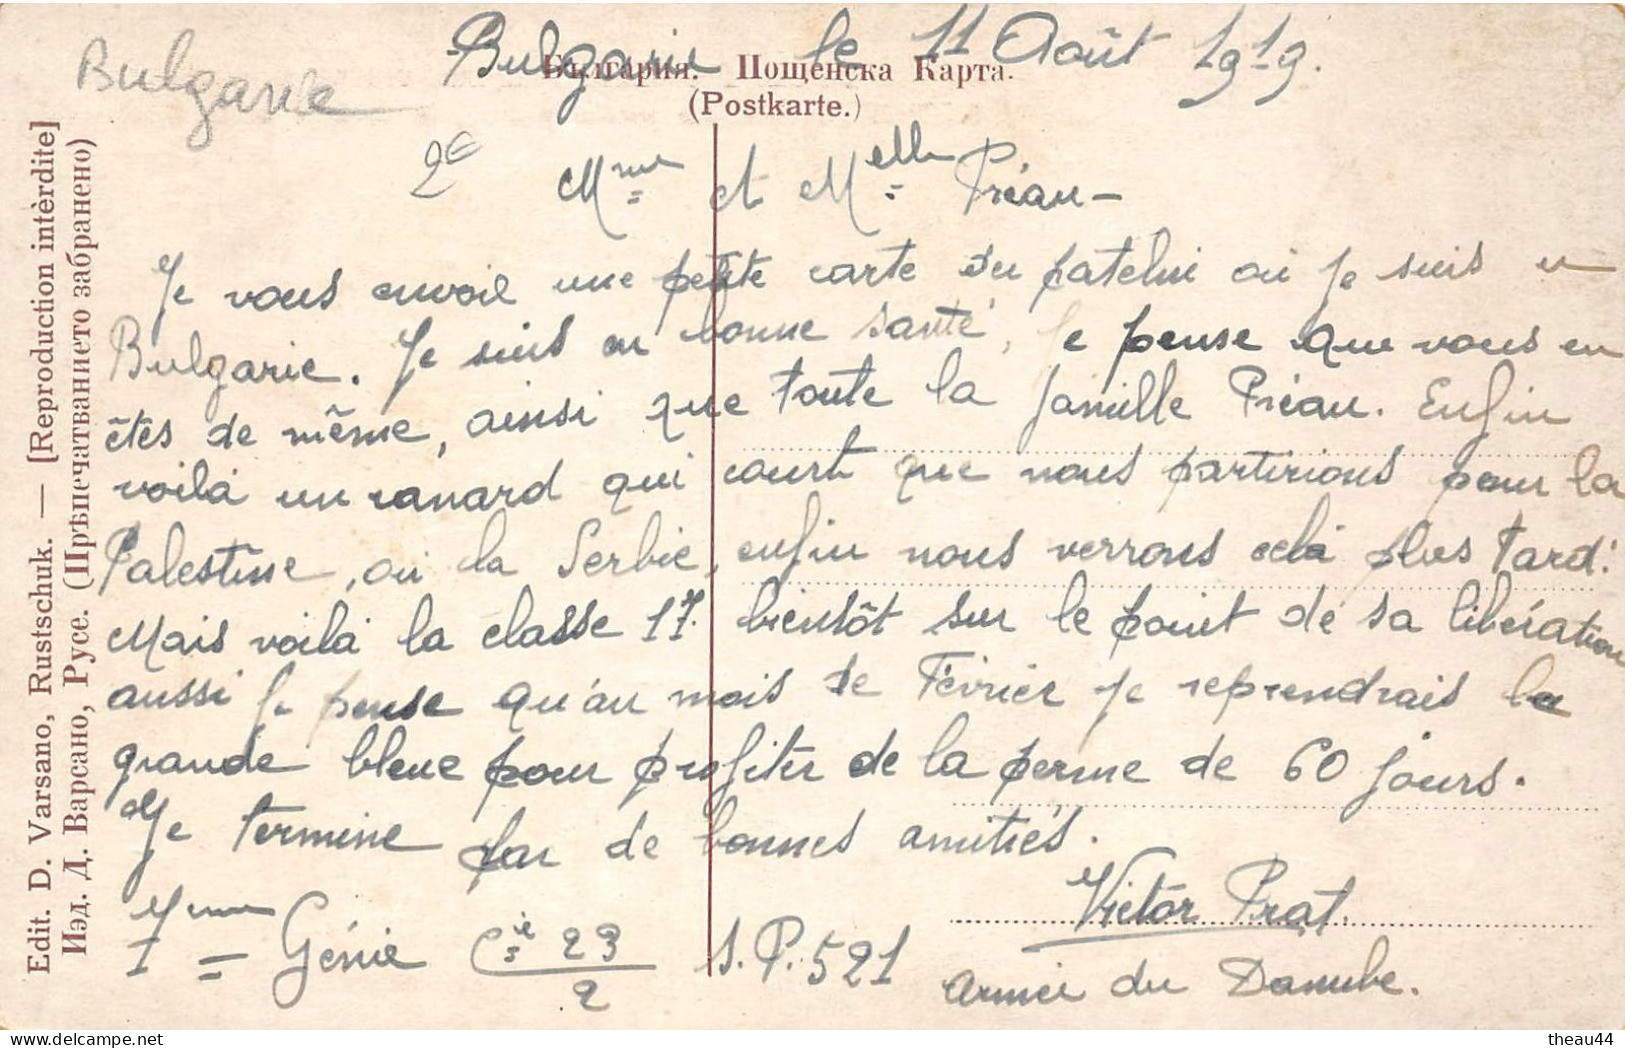 Bulgarie le 11 Août 1919.
Bulgarie
България. Пощенска Карта.
(Postkarte.)
2€
Mme et Melle Préau –
Je vous envoie une petite carte du patelin où je suis en
Bulgarie. Je suis en bonne santé, je pense que vous en
êtes de même, ainsi que toute la famille Préau. Enfin
voilà un canard qui court que nous partirions pour la
Palestine, ou la Serbie, enfin nous verrons celà plus tard.
Mais voilà la classe 17. bientôt sur le point de sa libération
aussi je pense qu'au mois de Février je reprendrais la
grande bleue pour profiter de la perme de 60 jours.
Je termine par de bonnes amitiés.
Victor Prat.
Génie Cie 23/2 S.P. 521
Armée du Danube.
Edit. D. Varsano, Rustschuk. — [Reproduction intèrdite]
Изд. Д. Варсано, Русе. (Прѣпечатванието забранено)
theau44